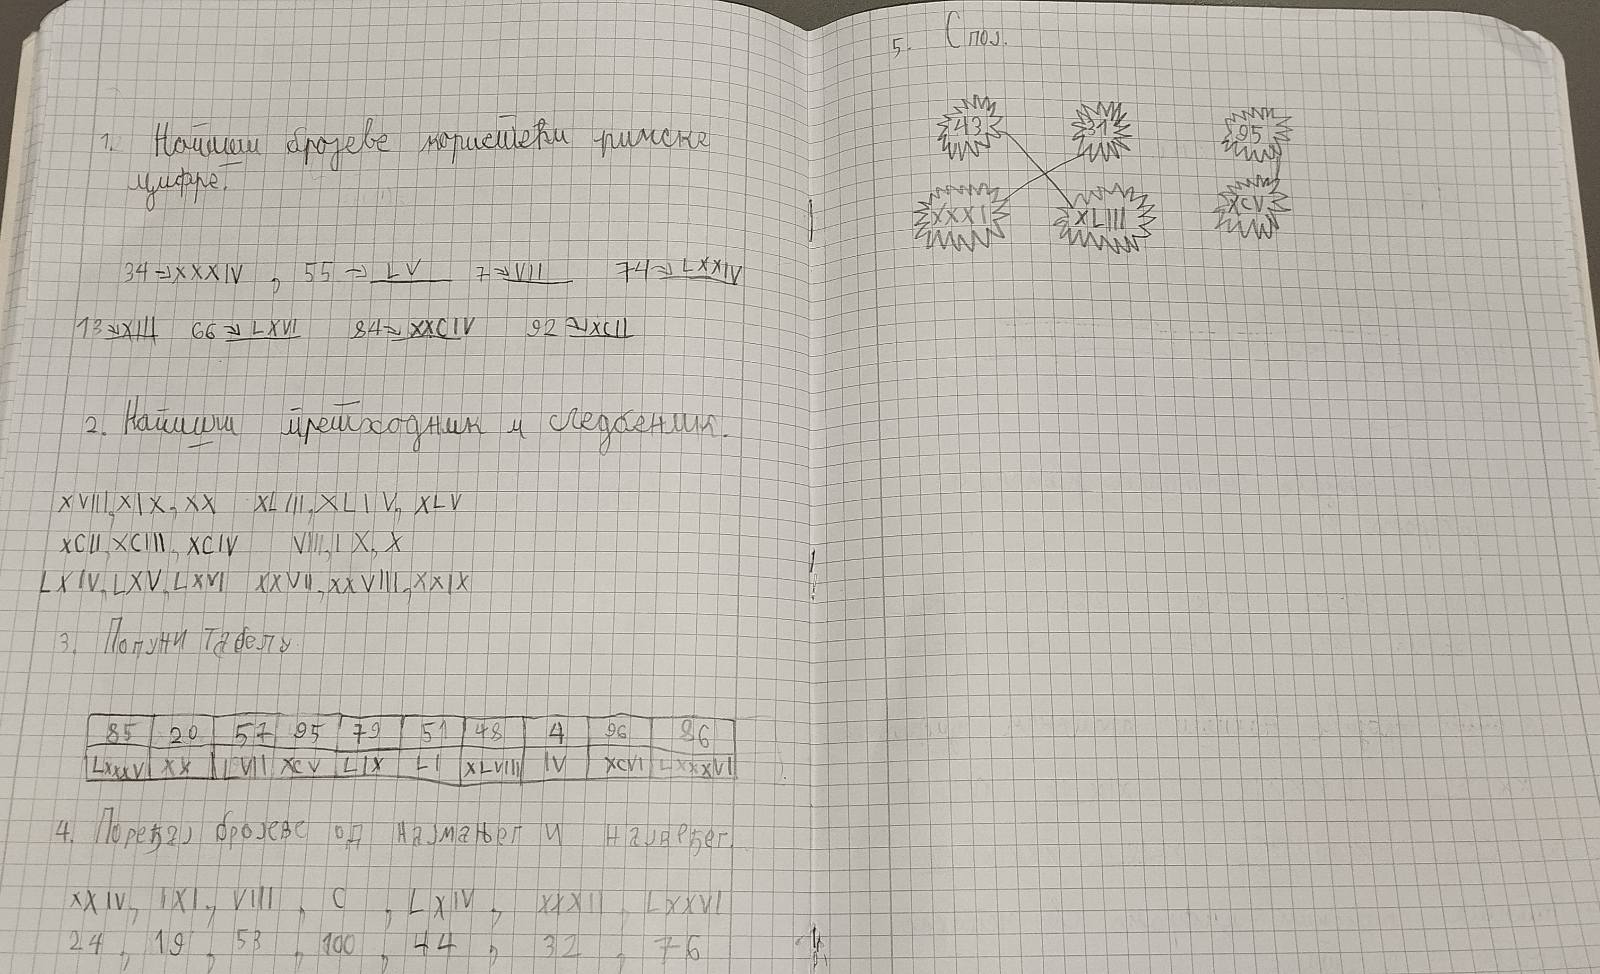 1. Найиши бројеве користећи римске
цифре.
34→XXXIV, 55→LV 7→VII 74→LXXIV
13→XIII 66→LXVI 84→XXCIV 92→XCII
2. Напиши претходник и следбеник.
XVIII, XIX, XX XLIII, XLIV, XLV
XCII, XCIII, XCIV VIII, IX, X
LXIV, LXV, LXVI XXVII, XXVIII, XXIX
3. Попуни табелу
85 20 57 95 79 51 48 4 96 86
LXXXV XX LVII XCV LIX LI XLVIII IV XCVI LXXXVI
4. Поређај бројеве од најмањег и највећег.
XXIV, IXI, VIII, C, LXIV, XXXII, LXXVI
24, 19, 53, 100, 44, 32, 76
5. Спој.
43 31 95
XXXI XLIII XCV